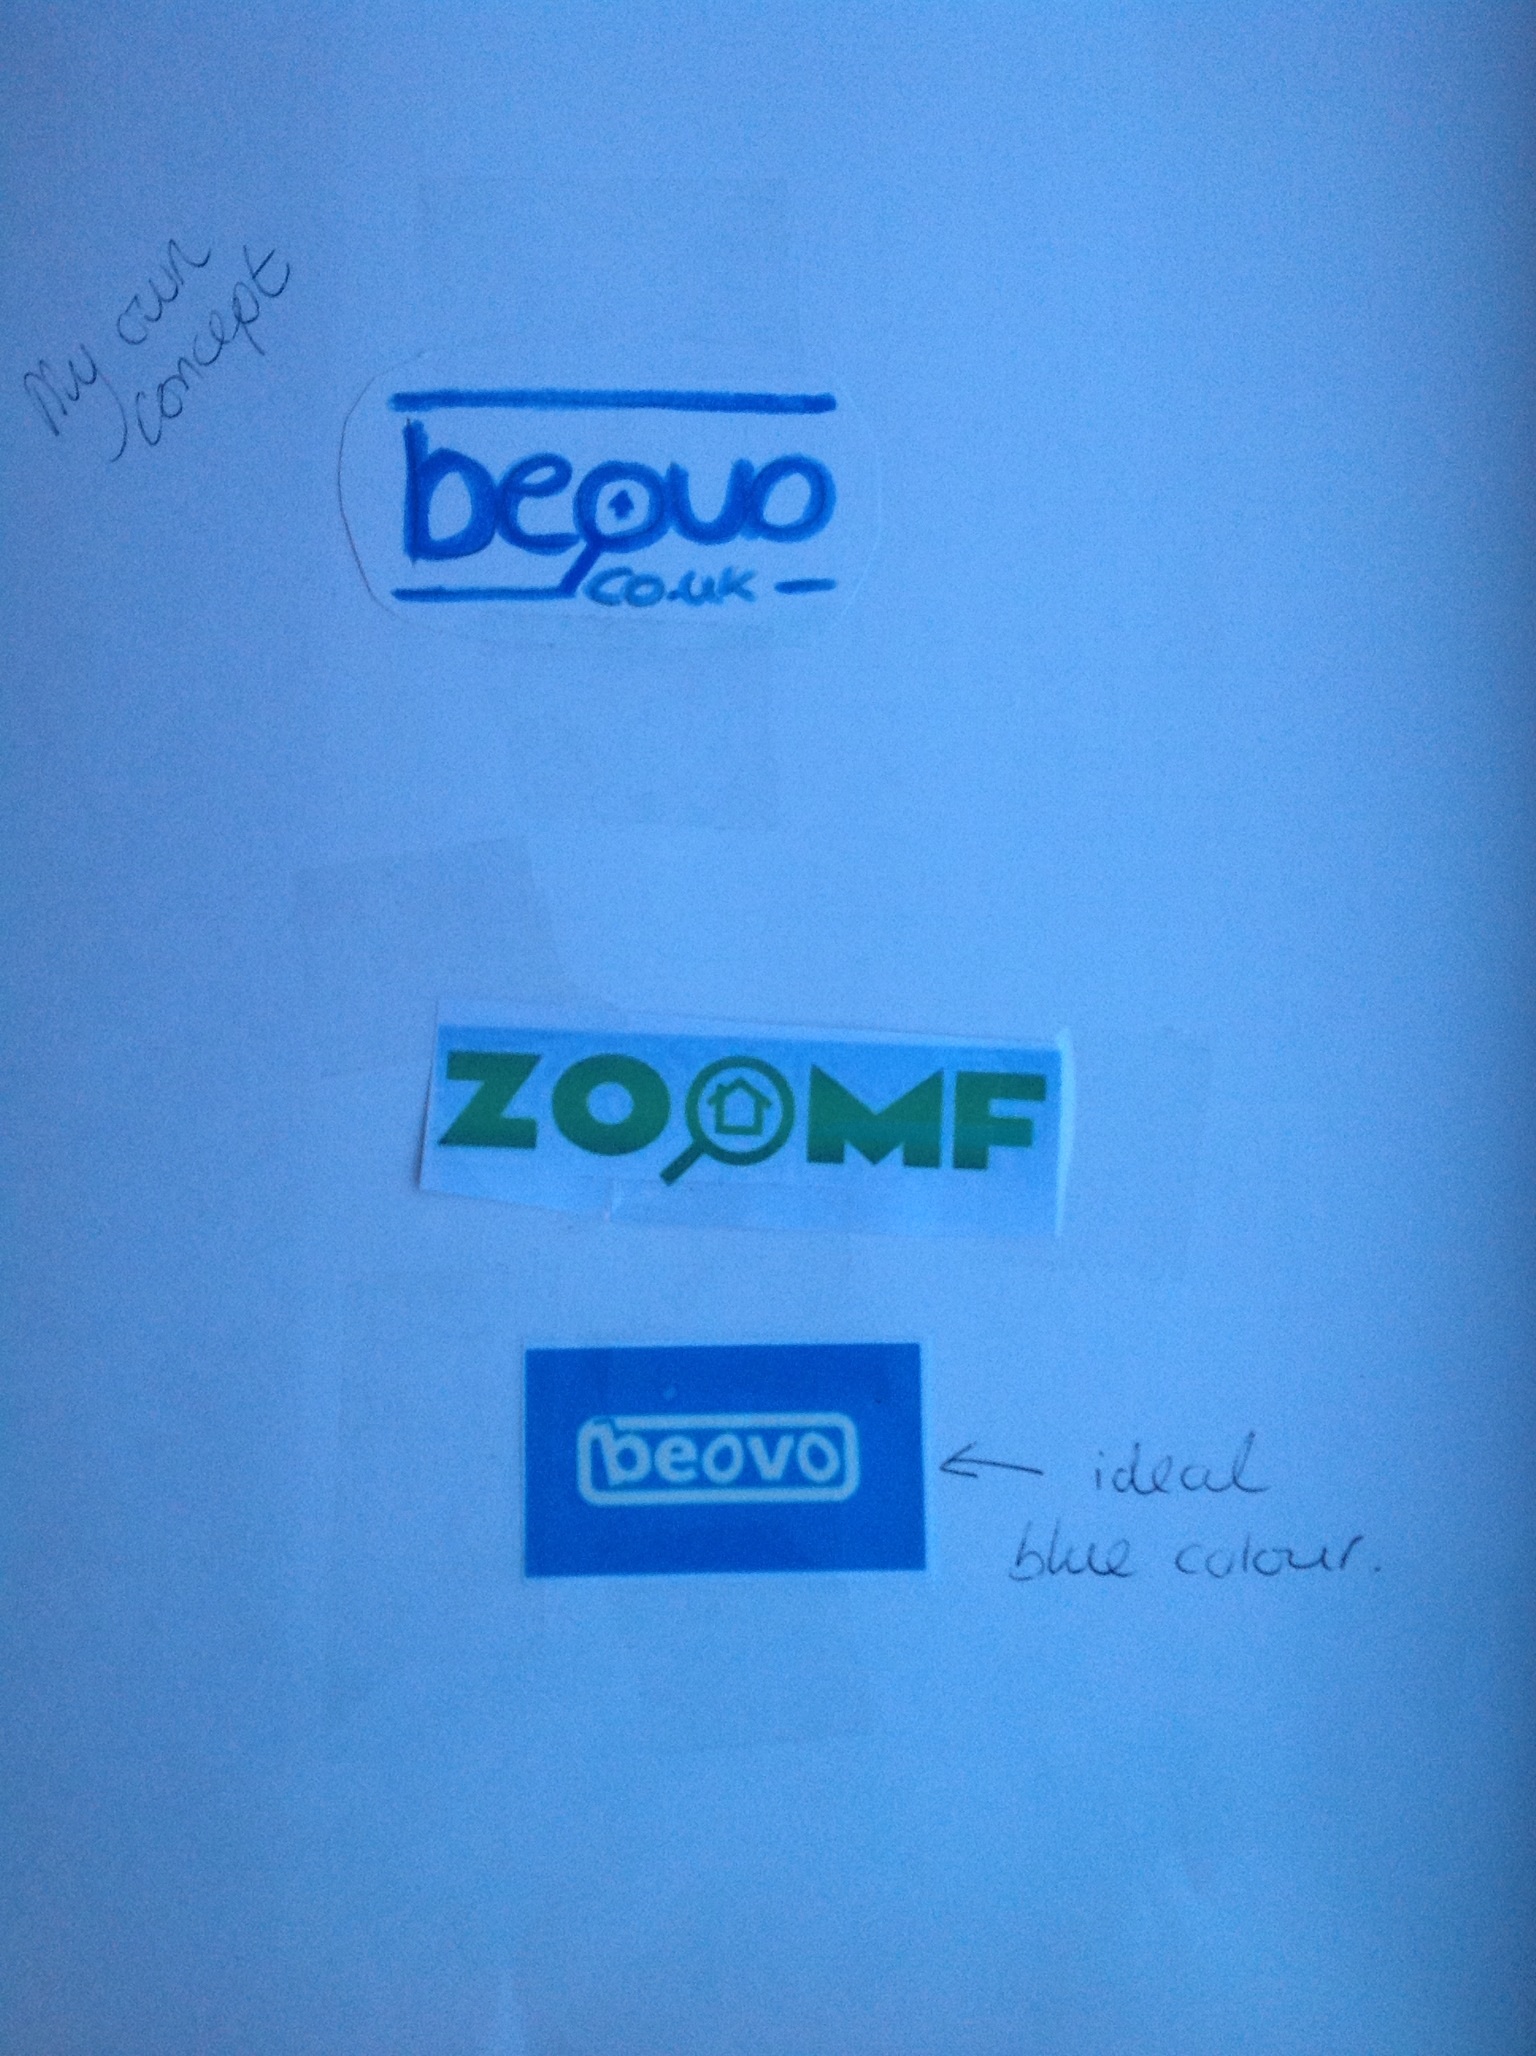 My own
concept
beovo
co.uk
ZOOMF
beovo
ideal
blue colour.